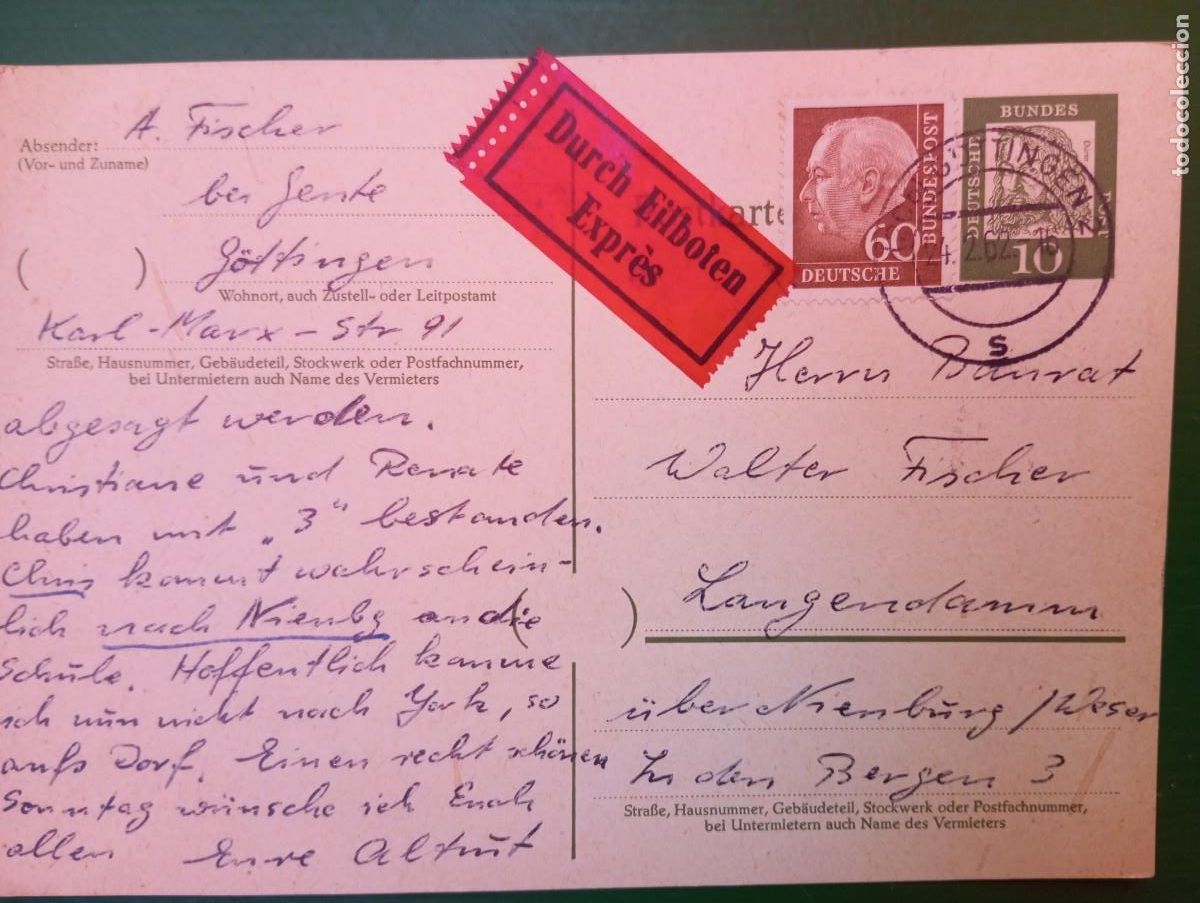 Absender:
(Vor- und Zuname)
A. Fischer
bei Gente
( )
Göttingen
Wohnort, auch Zustell- oder Leitpostamt
Karl-Marx-Str 91
Straße, Hausnummer, Gebäudeteil, Stockwerk oder Postfachnummer,
bei Untermietern auch Name des Vermieters
abgesagt werden.
Christiane und Renate
haben mit „3“ bestanden.
Chris kommt wahrschein-
lich nach Nienbg an die
Schule. Hoffentlich komme
ich nun nicht nach York, so
aufs Dorf. Einen recht schönen
Sonntag wünsche ich Euch
allen Eure Altrut
Durch Eilboten
Exprès
60
DEUTSCHE
BUNDESPOST
BUNDES
DEUTSCHE
10
TTINGEN 2
24. 2.62. 16
s
Herrn Baurat
Walter Fischer
( )
Langendamm
über Nienburg/Weser
In den Bergen 3
Straße, Hausnummer, Gebäudeteil, Stockwerk oder Postfachnummer,
bei Untermietern auch Name des Vermieters
todocoleccion